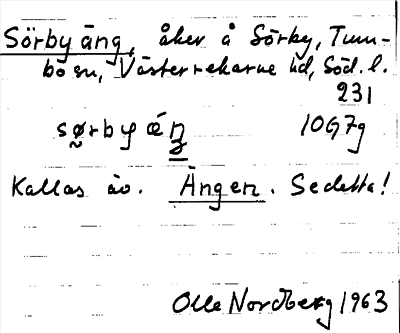 Sörbyäng, åker å Sörby, Tum-
bo sn, Västerrekarne hd, Söd. l.
231
10G7g
Kallas äv. Ängen. Se detta!
Olle Nordberg 1963